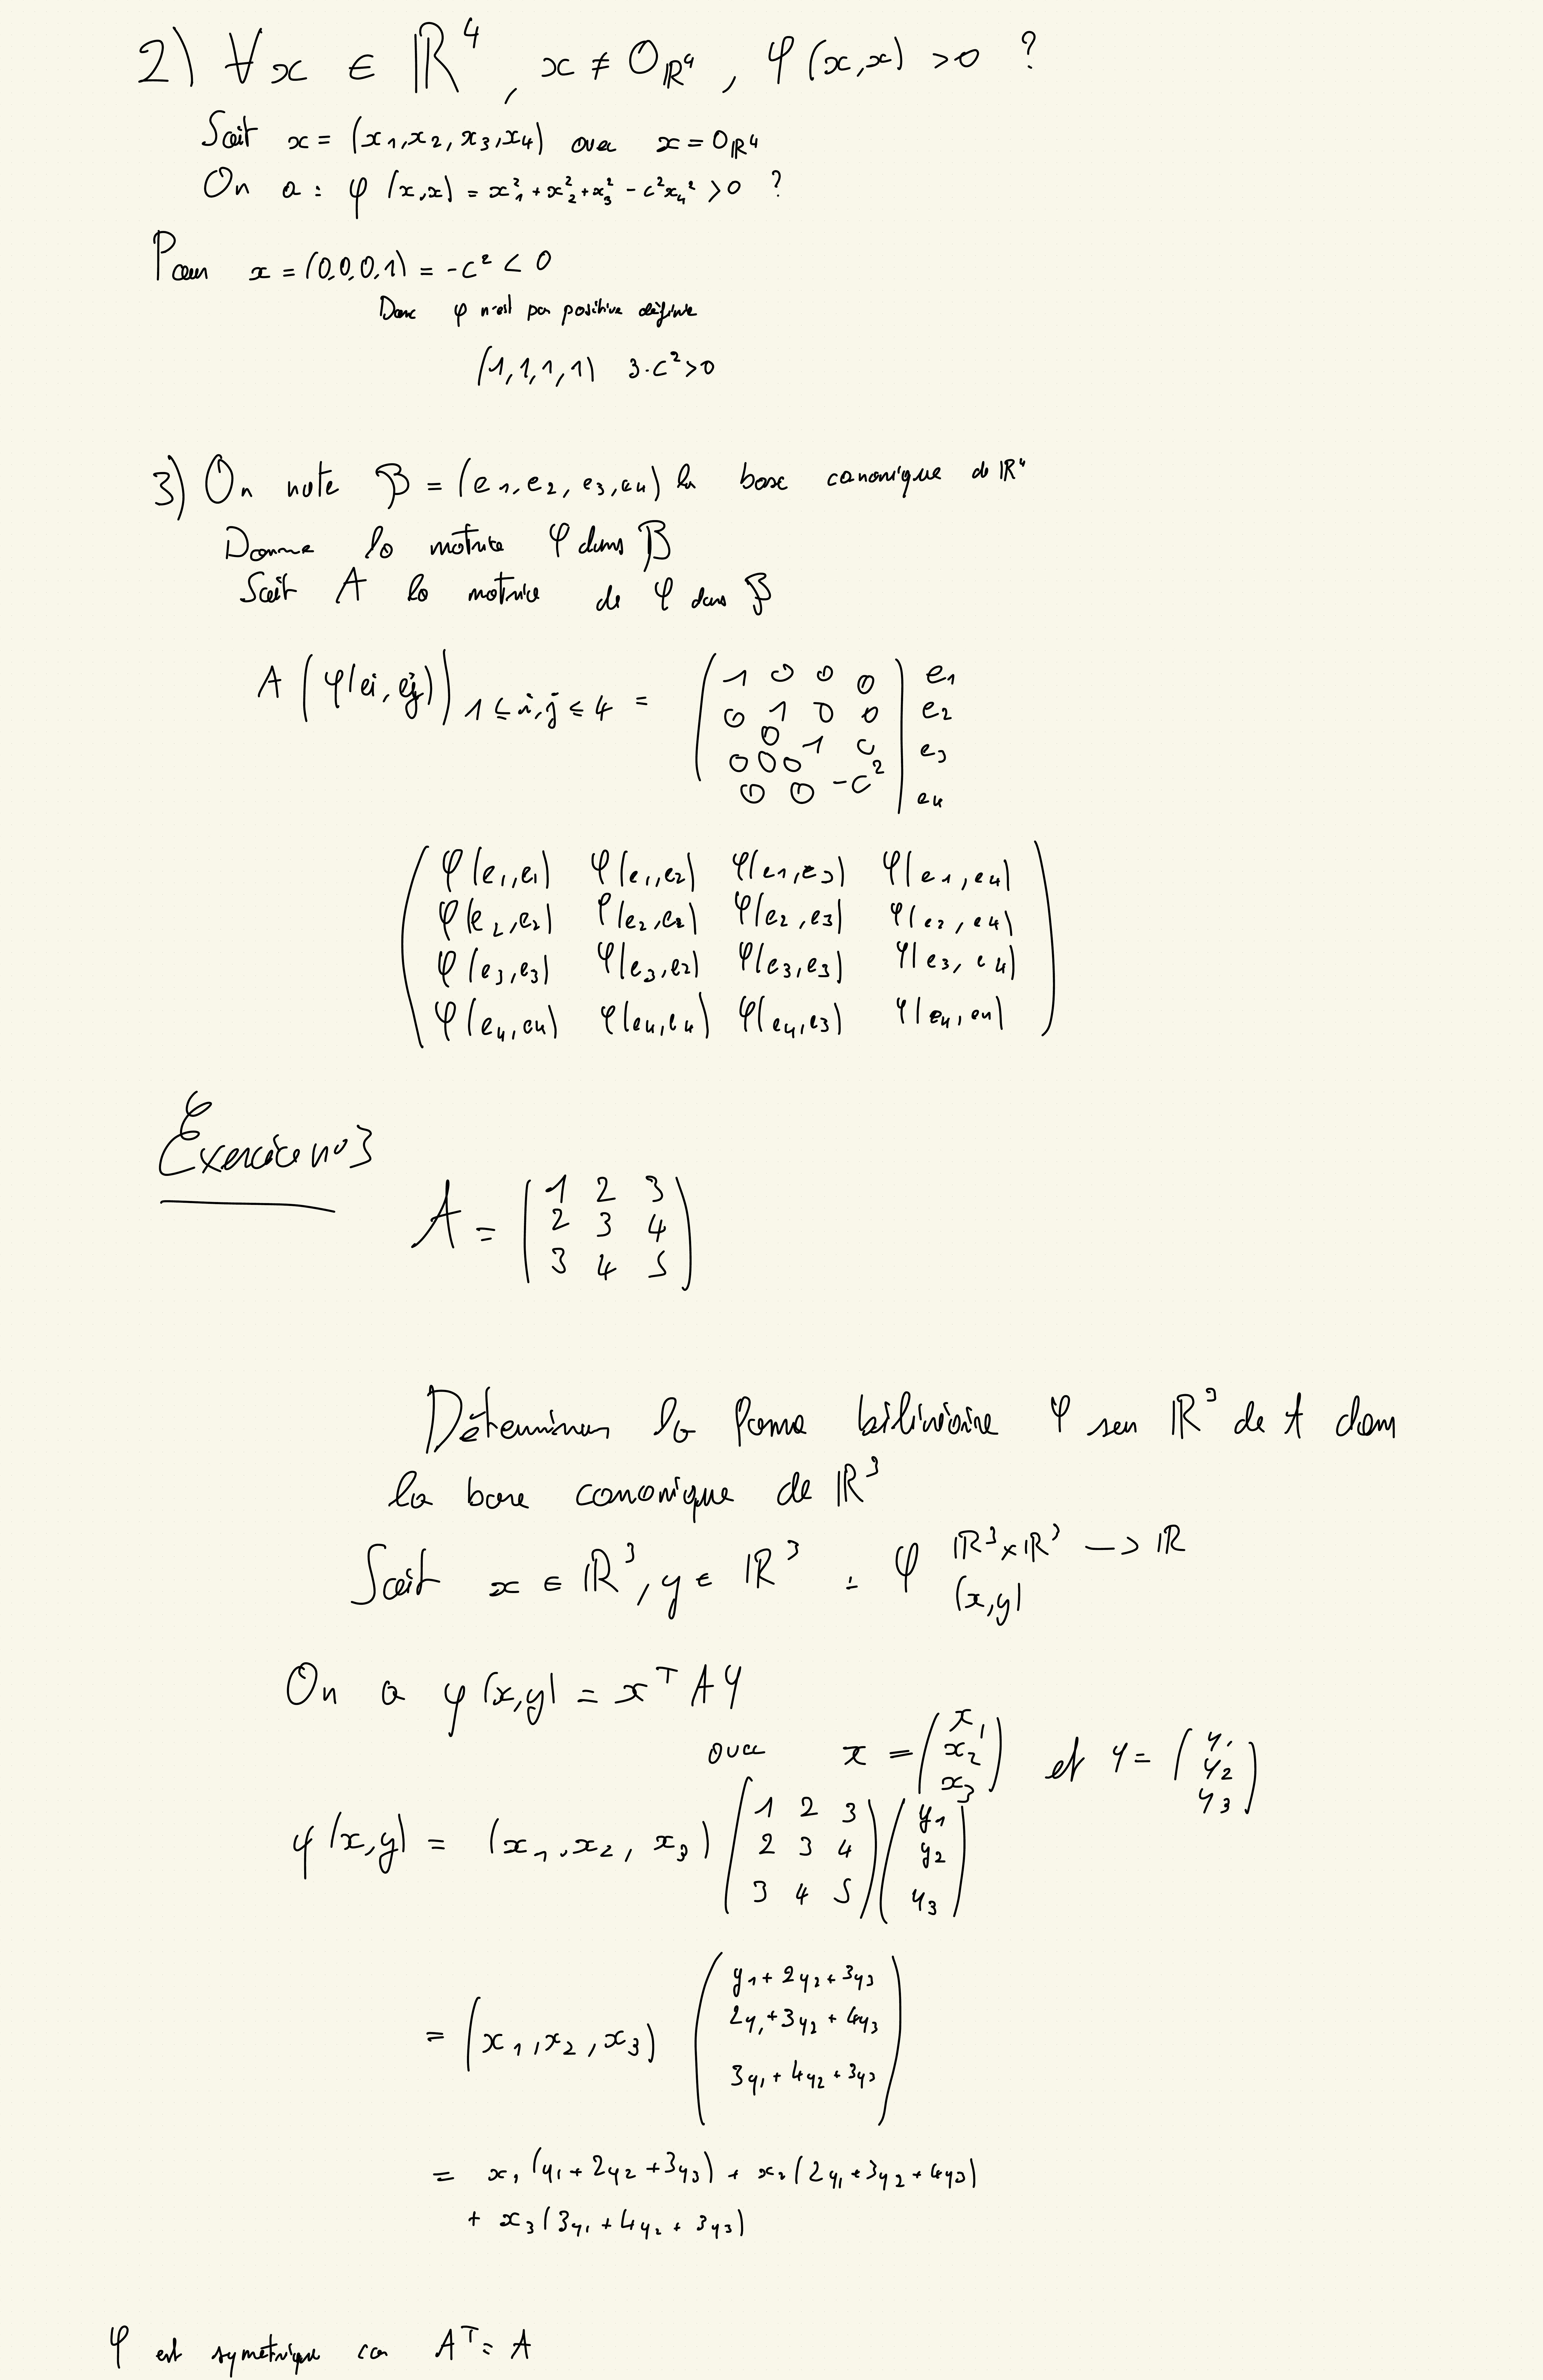 2) ∀x ∈ ℝ⁴, x ≠ 0_ℝ⁴, φ(x,x) >0 ?
Soit x = (x₁,x₂,x₃,x₄) avec x = 0_ℝ⁴
On a : φ(x,x) = x₁² + x₂² + x₃² - c²x₄² >0 ?
Pour x = (0,0,0,1) = -c² < 0
Donc φ n'est pas positive définie
(1,1,1,1) 3-c²>0
3) On note β = (e₁,e₂,e₃,e₄) la base canonique de ℝ⁴
Donner la matrice φ dans β
Soit A la matrice de φ dans β
A (φ(ei,ej)) 1≤i,j≤4 =
1 0 0 0 e₁
0 1 0 0 e₂
0 0 1 0 e₃
0 0 0
0 0 -c² e₄
φ(e₁,e₁) φ(e₁,e₂) φ(e₁,e₃) φ(e₁,e₄)
φ(e₂,e₂) φ(e₂,e₂) φ(e₂,e₃) φ(e₂,e₄)
φ(e₃,e₃) φ(e₃,e₂) φ(e₃,e₃) φ(e₃,e₄)
φ(e₄,e₄) φ(e₄,e₄) φ(e₄,e₃) φ(e₄,e₄)
Exercice n°3
A =
1 2 3
2 3 4
3 4 5
Déterminer la forme bilinéaire φ sur ℝ³ de A dans
la base canonique de ℝ³
Soit x ∈ ℝ³, y ∈ ℝ³ : φ ℝ³×ℝ³ -> ℝ
(x,y)
On a φ(x,y) = xᵀAY
avec x = (x₁ x₂ x₃) et Y = (y₁ y₂ y₃)
φ(x,y) = (x₁,x₂,x₃) (1 2 3 y₁
2 3 4 y₂
3 4 5) y₃
= (x₁,x₂,x₃) (y₁+2y₂+3y₃
2y₁+3y₂+4y₃
3y₁+4y₂+3y₃)
= x₁(y₁+2y₂+3y₃) + x₂(2y₁+3y₂+4y₃)
+ x₃(3y₁+4y₂+3y₃)
φ est symétrique car Aᵀ= A